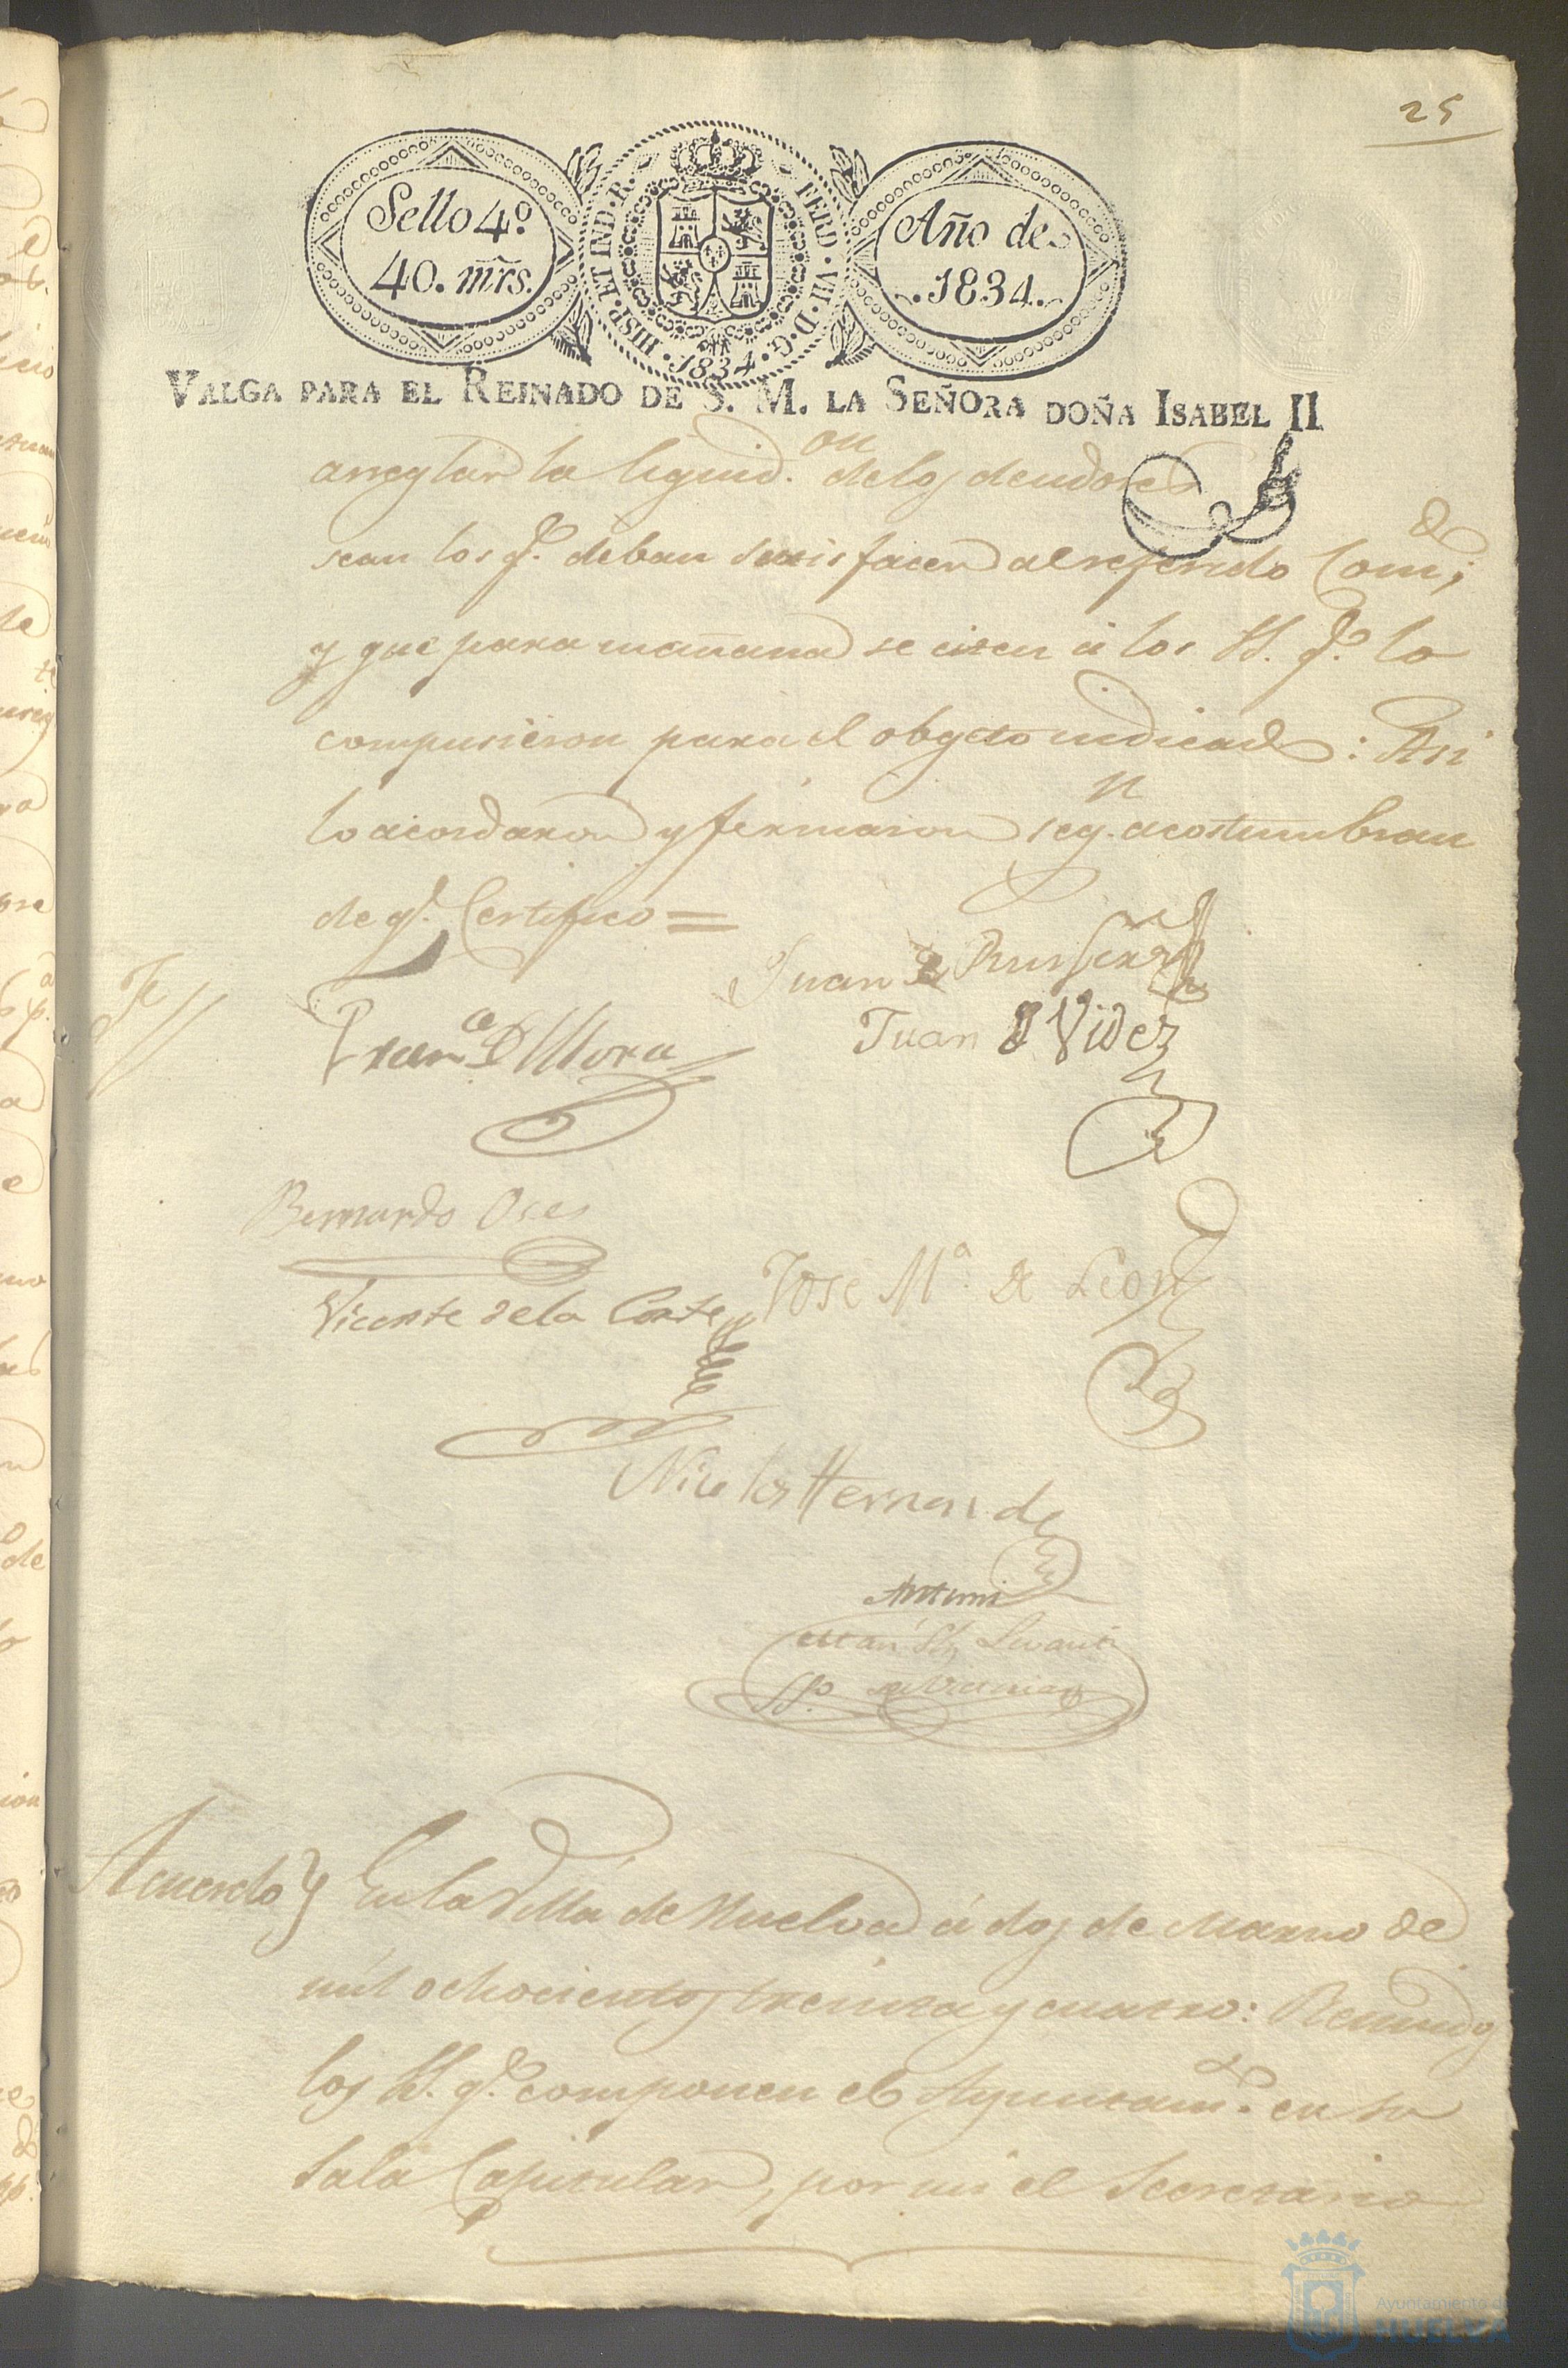 25
Sello 4º.
40. mrs.
HISP. ET IND. R. FERD. VII. D. G. 1834.
Año de
1834.
VALGA PARA EL REINADO DE S. M. LA SEÑORA DOÑA ISABEL II
arreglar la liquid.on delos deudores
sean los q.e deban satisfacer al referido Com.do;
y que para mañana se citen á los SS. q.e lo
compusieron para el obgeto indicado: Asi
lo acordaron y firmaron seg.n acostumbran
de q.e Certifico =
Juan
Fran.co D Mora
Juan J Videz
Bernardo Oses
José M.ª de Leon
Vicente dela Corte
Nicolas Hernandez
Antemi
SSº.
Acuerdo} En la Villa de Huelva á dos de Marzo de
mil ochocientos treinta y cuatro: Reunidos
los SS. q.e componen el Ayuntam.to en su
Sala Capitular, por mi el Secretario
Ayuntamiento de
HUELVA